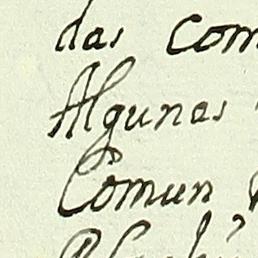 das com
Algunas
Comun